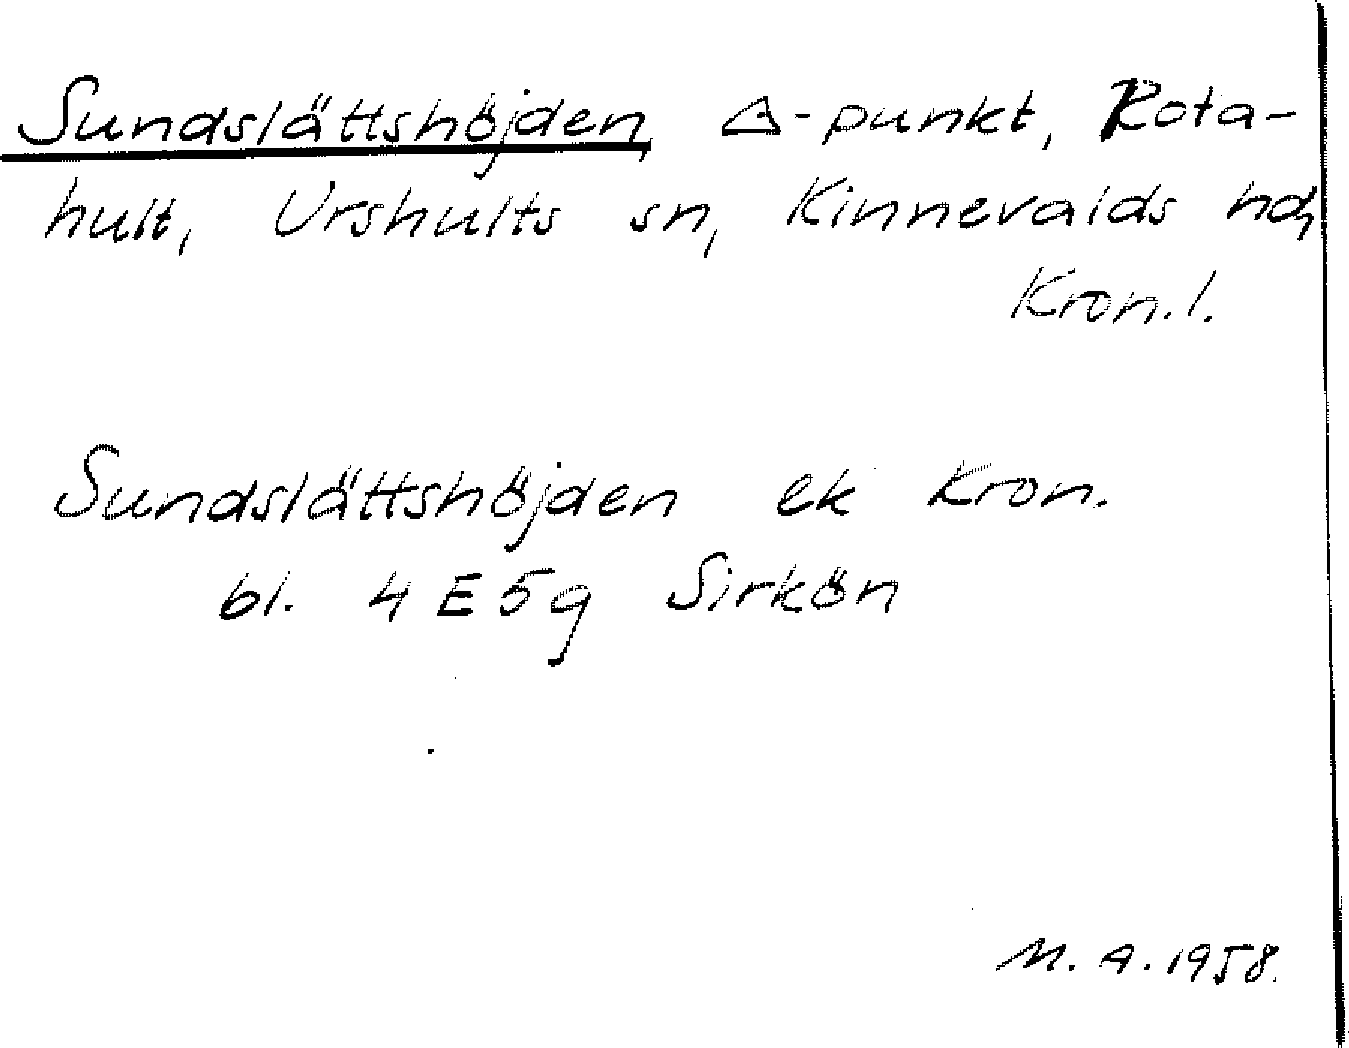 Sundslättshöjden, Δ-punkt, Rota-
hult, Urshults sn, Kinnevalds hd,
Kron.l.
Sundslättshöjden ek Kron.
bl. 4 E 5g Sirkön
M. A. 1958.